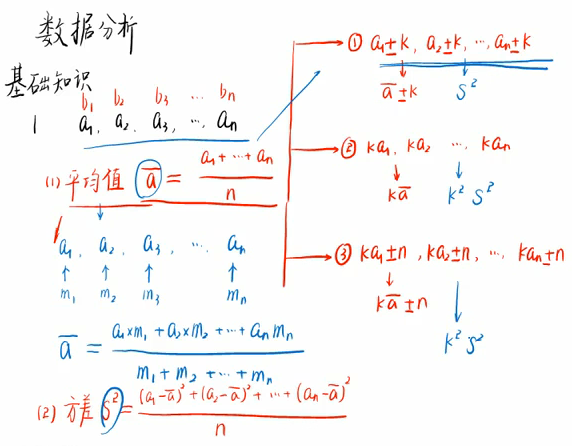 数据分析
基础知识
b₁ b₂ b₃ ... bₙ
1 a₁, a₂, a₃, ... aₙ
(1) 平均值 a̅ = (a₁ + ... + aₙ) / n
a₁, a₂, a₃, ... aₙ
↑ ↑ ↑ ↑
m₁ m₂ m₃ mₙ
a̅ = (a₁×m₁ + a₂×m₂ + ... + aₙmₙ) / (m₁ + m₂ + ... + mₙ)
(2) 方差 S² = ((a₁-a̅)² + (a₂-a̅)² + ... + (aₙ-a̅)²) / n
① a₁±k, a₂±k, ..., aₙ±k
↓ ↓
a̅±k S²
② ka₁, ka₂ ... kaₙ
↓ ↓
ka̅ k²S²
③ ka₁±n, ka₂±n, ... kaₙ±n
↓ ↓
ka̅±n
k²S²